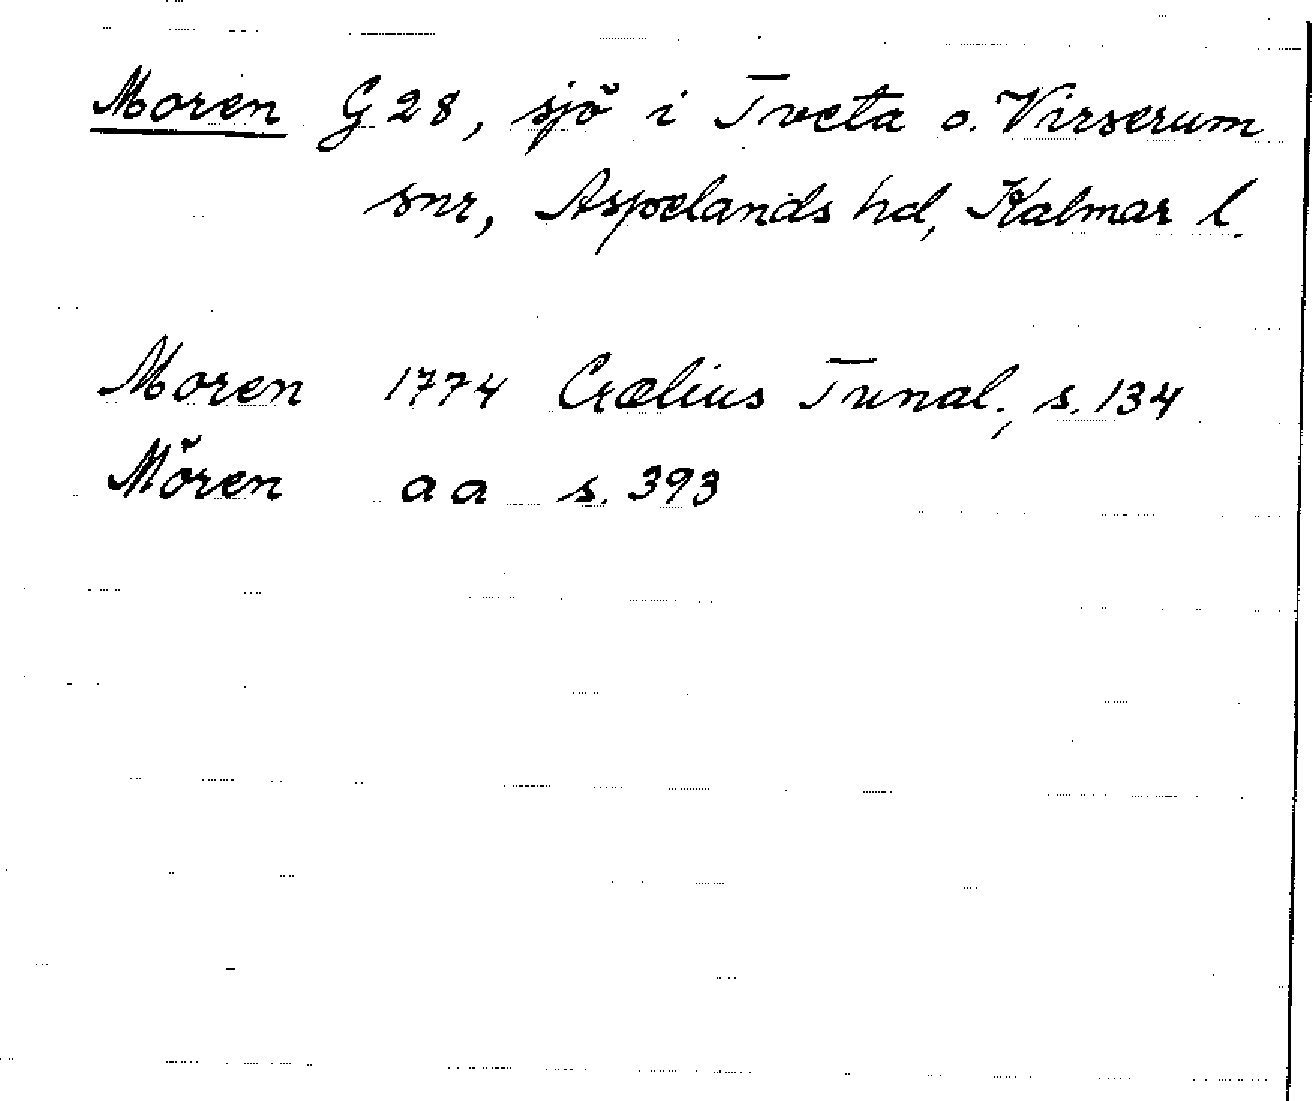 Moren G 28, sjö i Tveta o. Virserum
snr, Aspelands hd, Kalmar l.
Moren 1774 Crælius Tunal., s. 134
Mören aa s. 393